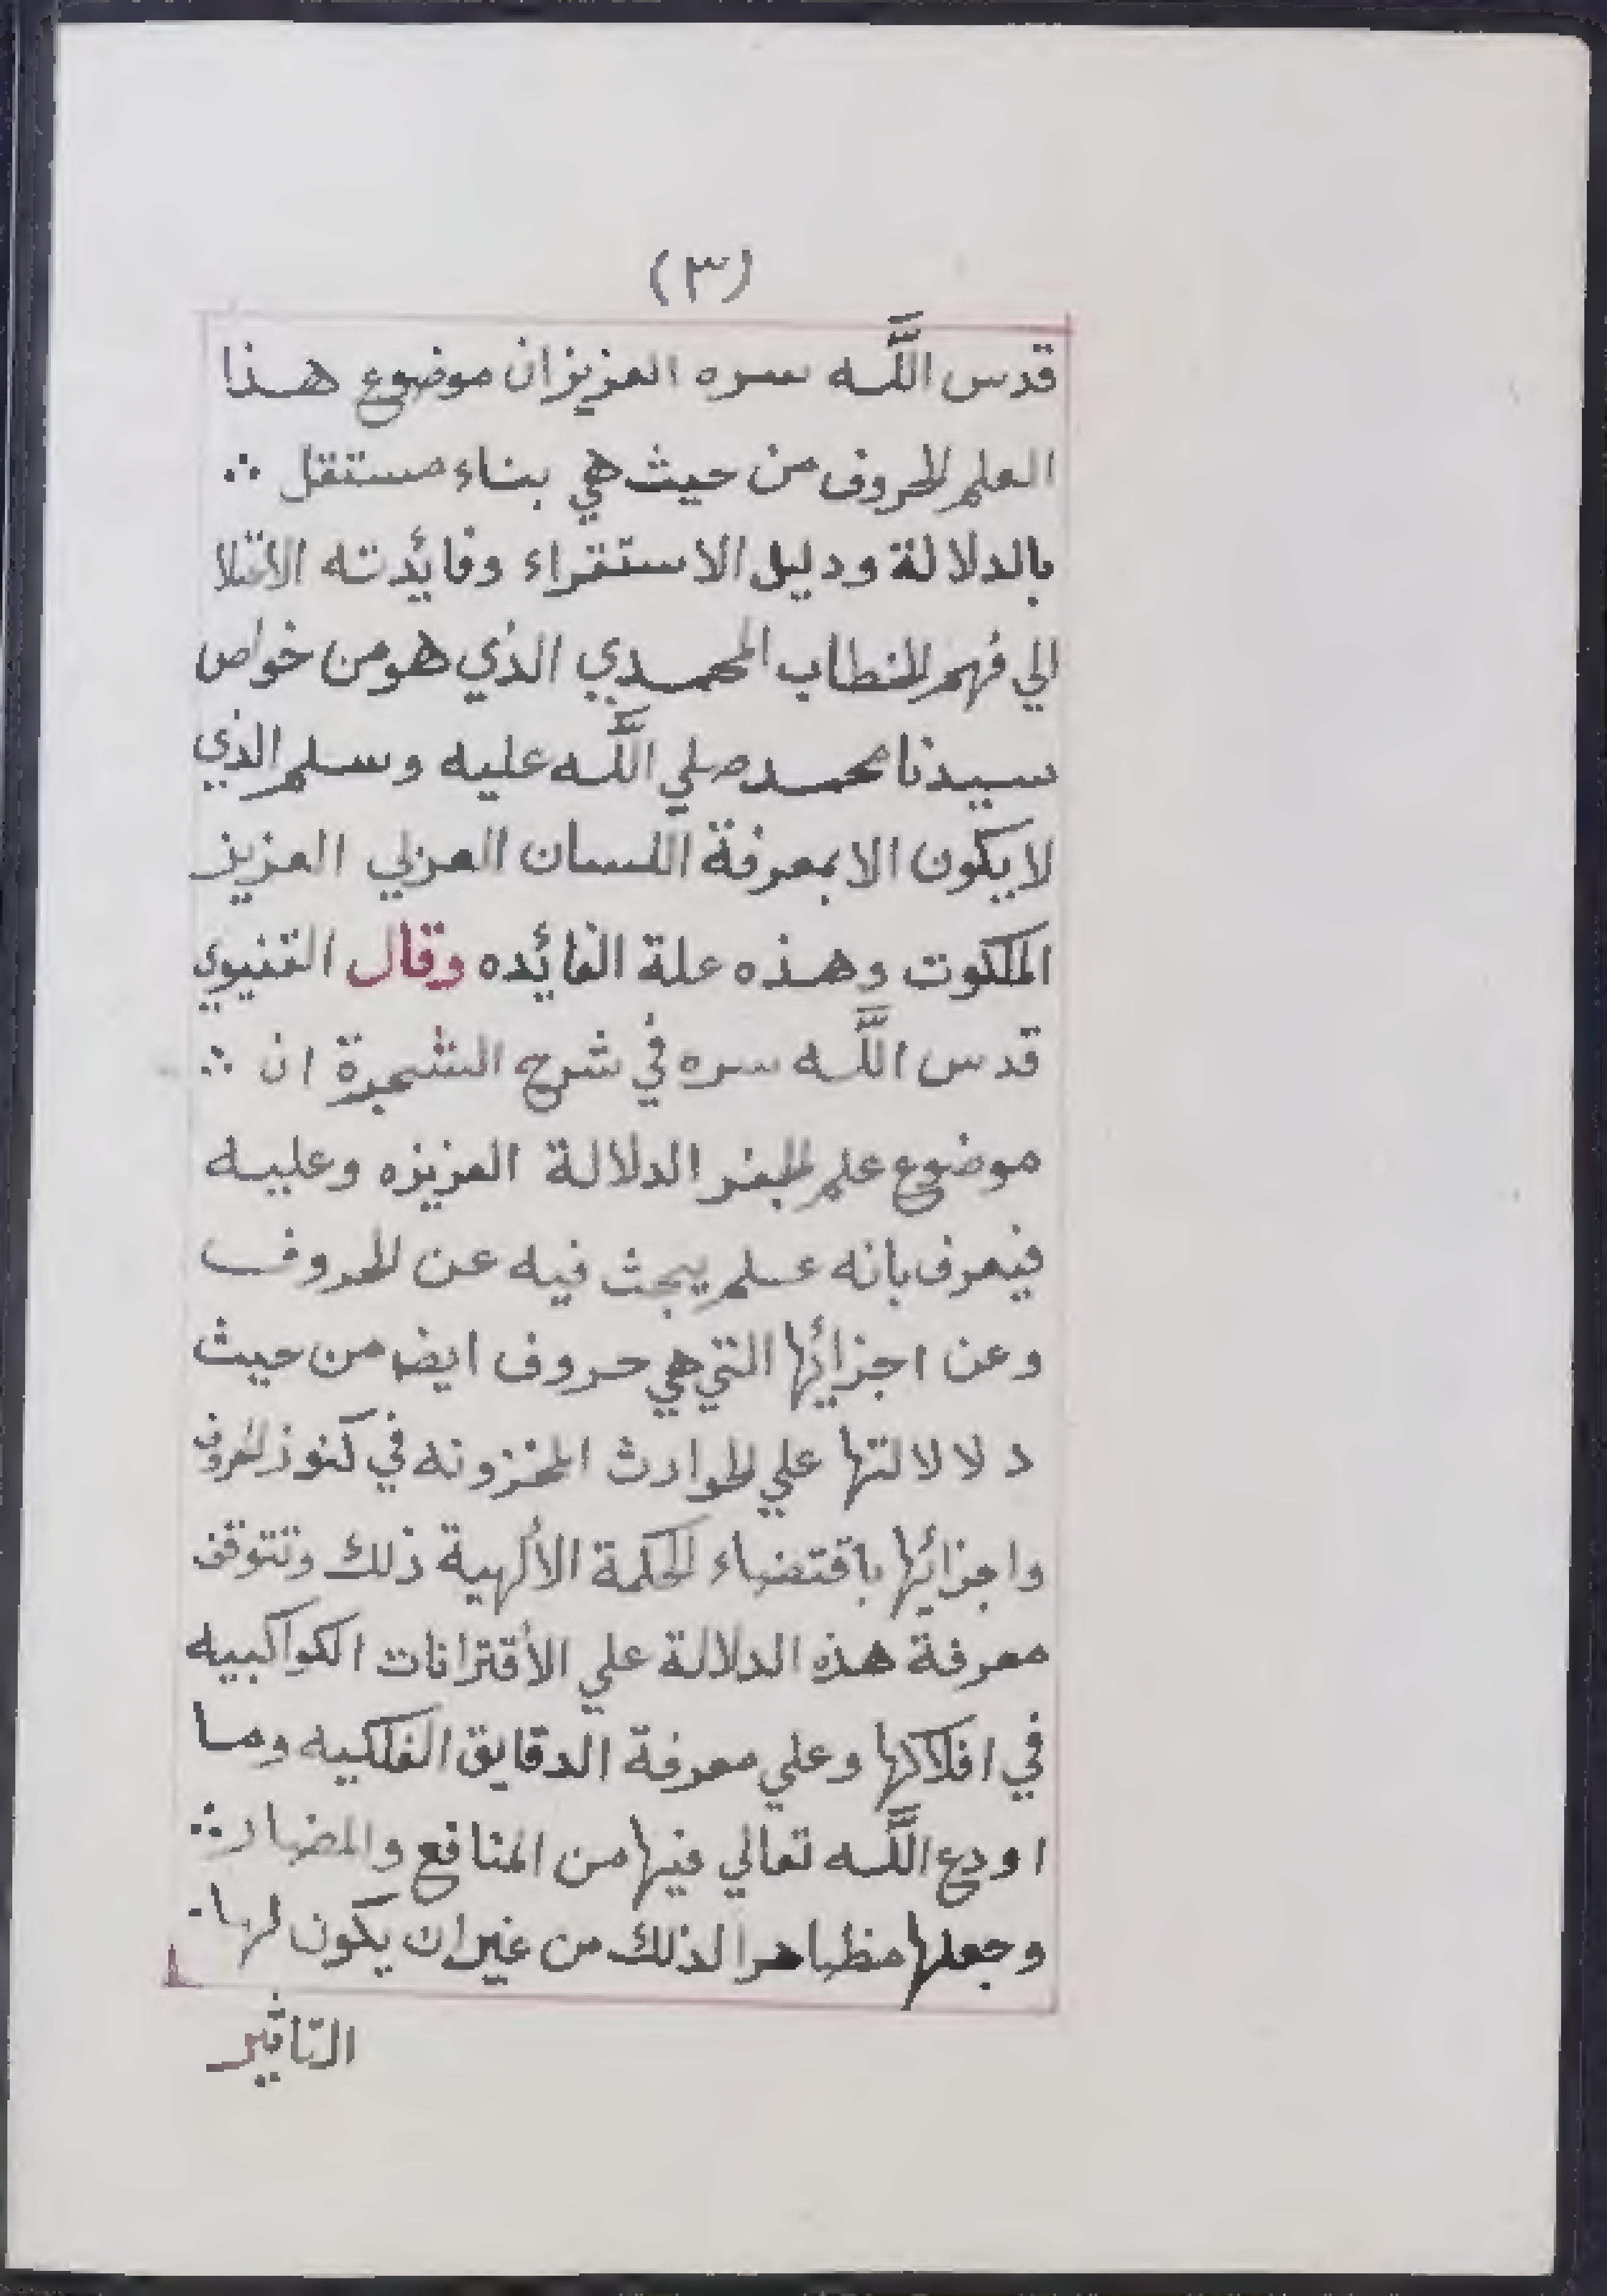 (٣)
قدس اللّٰه سره العزيز ان موضوع هذا
العلم الحروف من حيث هي بناء مستقل ∴
بالدلالة ودليل الاستقراء وفائدته
الي فهم الخطاب المحمدي الذي هو من خواص
سيدنا محمد صلي اللّٰه عليه وسلم الذي
لا يكون الا بمعرفة اللسان العربي العزيز
الملكوت وهذه علة الفائده وقال
قدس اللّٰه سره في شرح الشجرة ان ∴
موضوع علم الجفر الدلالة العزيزه وعليه
فيعرف بانه علم يبحث فيه عن الحروف
وعن اجزائها التي هي حروف ايض من حيث
دلالالتها علي الحوادث المخزونه في كنوز الحروف
واجزائها باقتضاء الحكمة الألهية ذلك وتتوقف
معرفة هذه الدلالة علي الأقترانات الكواكبيه
في افلاكها وعلي معرفة الدقايق الفلكيه وما
اودع اللّٰه تعالي فيها من المنافع والمضار ∴
وجعلها مظاهرا لذلك من غير ان يكون لها
التاثير